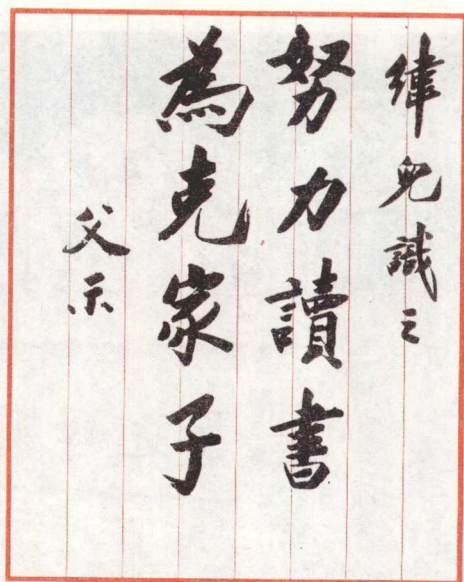 緯兒識之
努力讀書
為克家子
父示